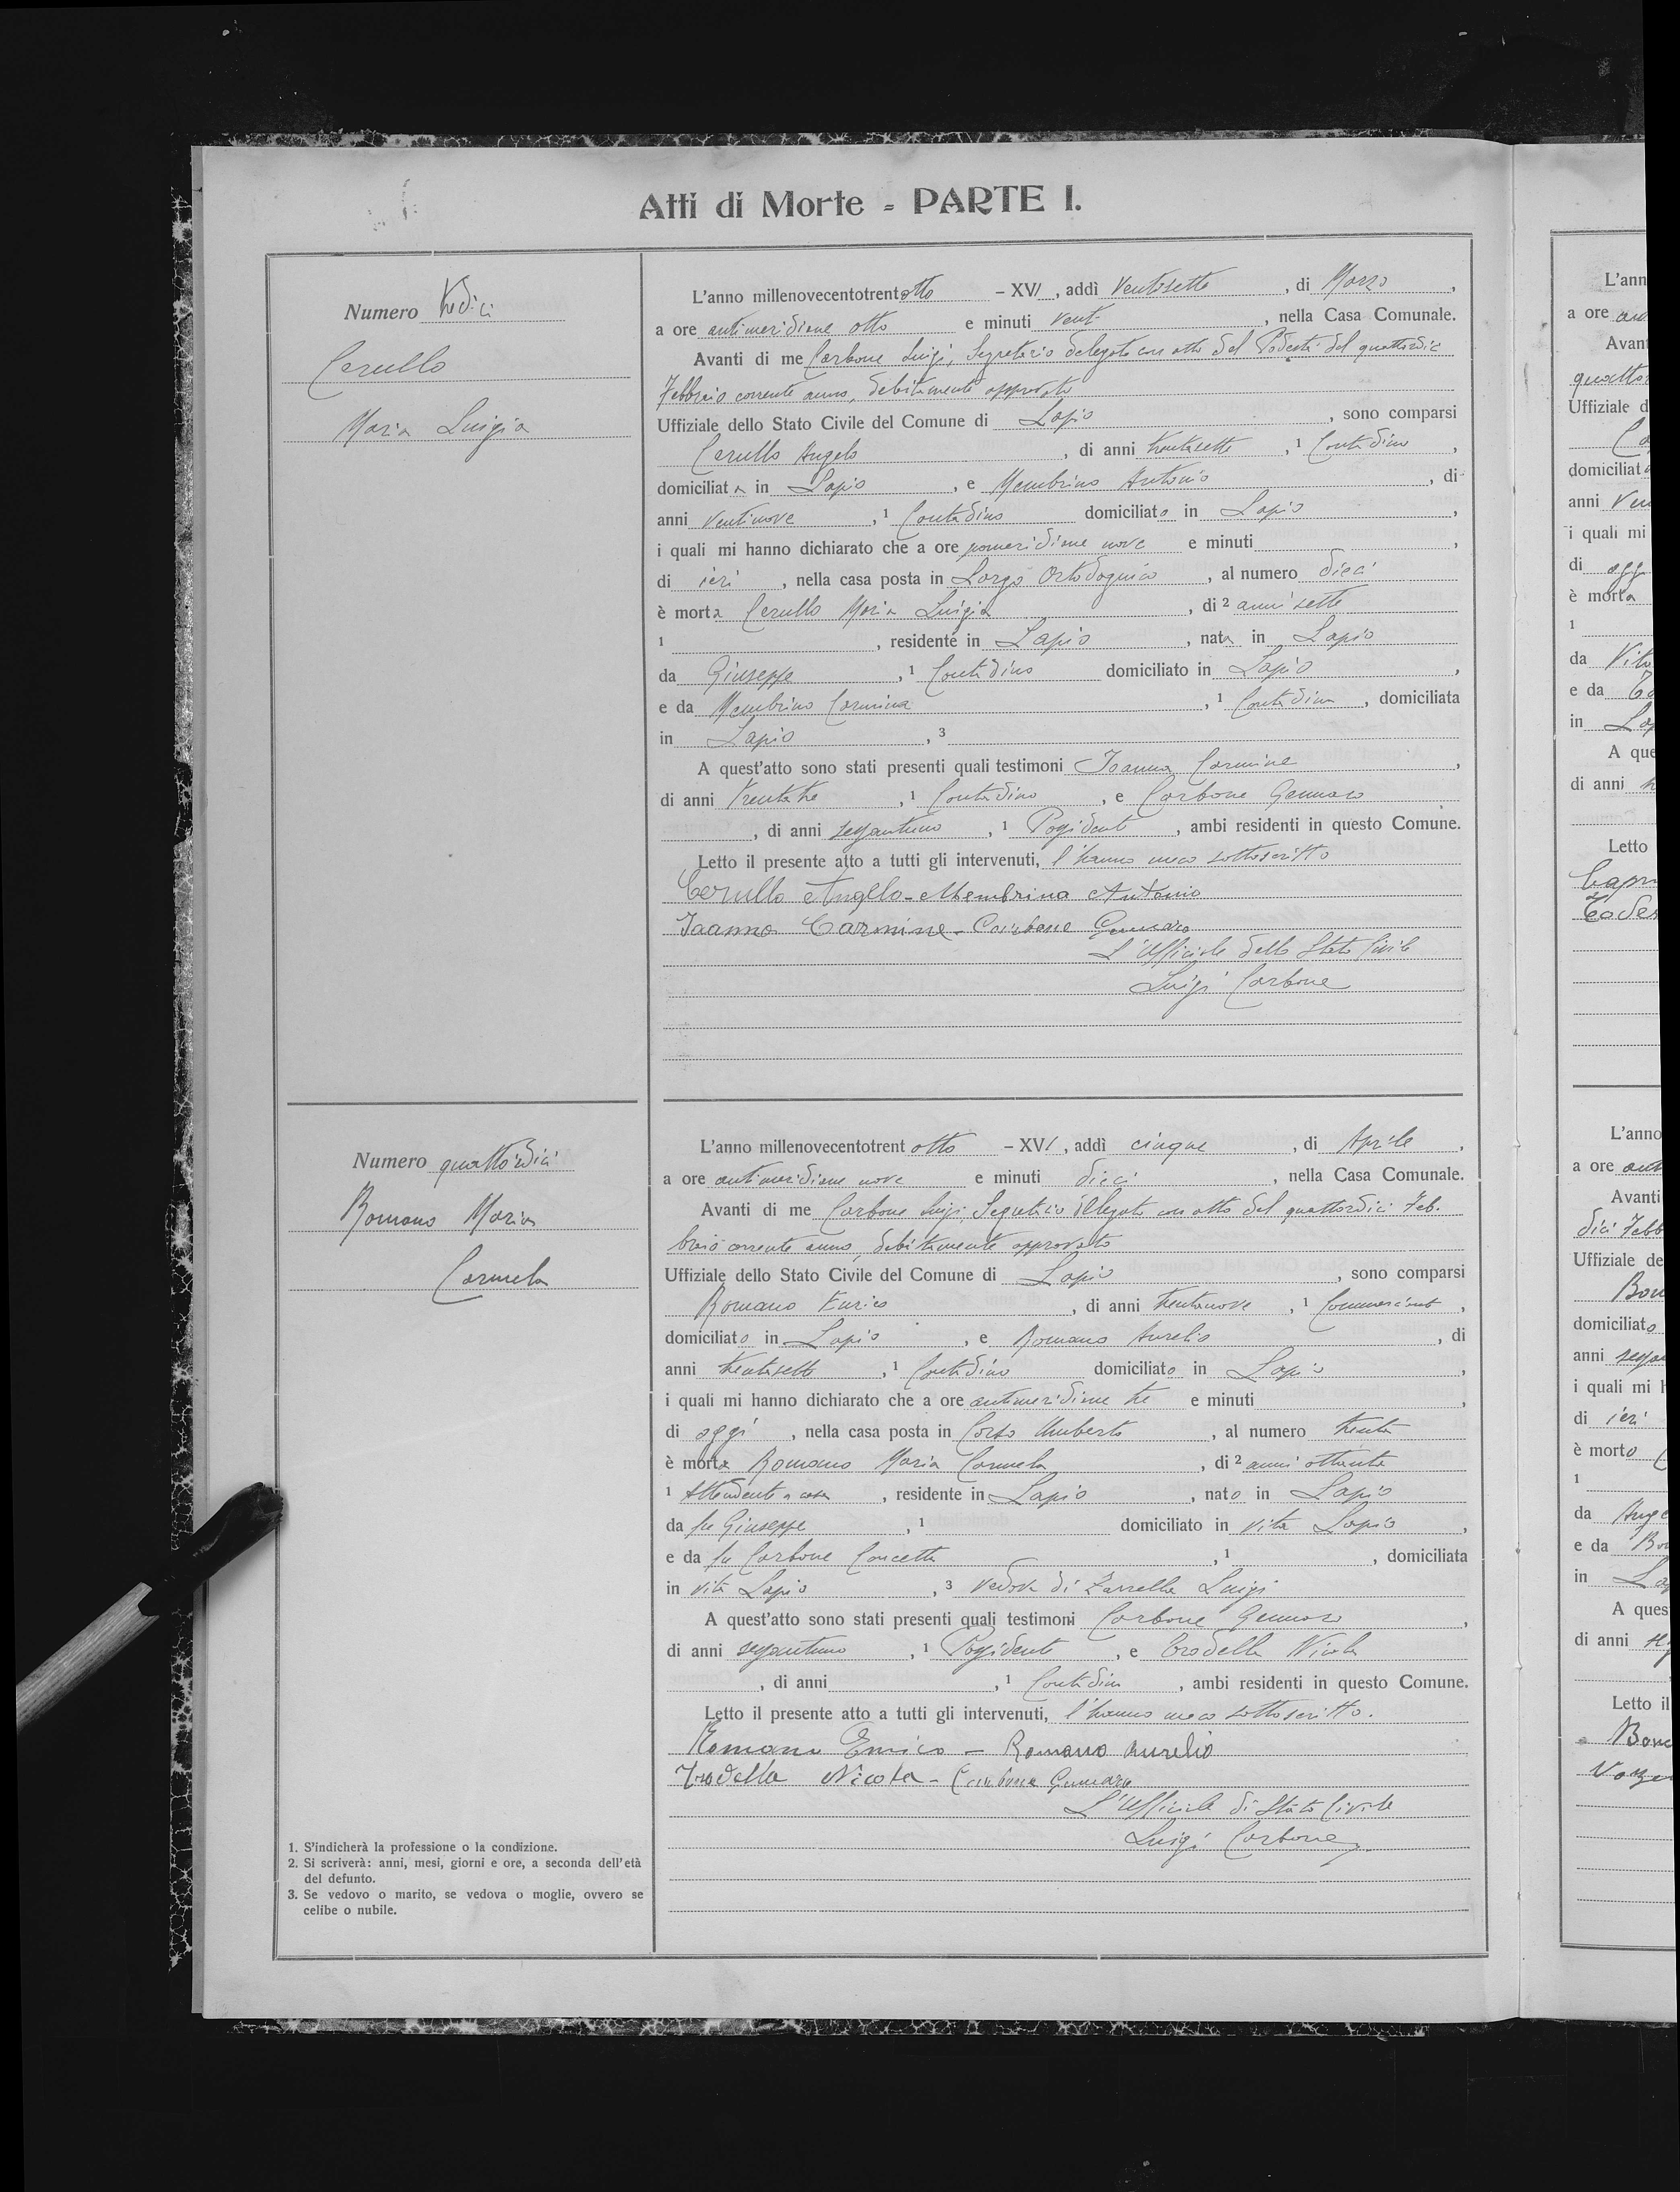 Atti di Morte - PARTE I.
Numero tredici
Cerullo
Maria Luigia
L'anno millenovecentotrentotto - XVI, addì ventisette, di Marzo,
a ore antimeridiane otto e minuti venti, nella Casa Comunale.
Avanti di me Carbone Luigi, Segretario delegato con atto del Podestà del quattordici
Febbraio corrente anno, debitamente approvato
Uffiziale dello Stato Civile del Comune di Lapio, sono comparsi
Cerullo Angelo, di anni trentasette, 1 Contadino,
domiciliato in Lapio, e Membrino Antonio, di
anni ventinove, 1 Contadino domiciliato in Lapio,
i quali mi hanno dichiarato che a ore pomeridiane nove e minuti,
di ieri, nella casa posta in Largo, al numero dieci
è morta Cerullo Maria Luigia, di 2 anni sette
1, residente in Lapio, nata in Lapio
da Giuseppe, 1 Contadino domiciliato in Lapio,
e da Membrino Carmina, 1 Contadina, domiciliata
in Lapio, 3
A quest'atto sono stati presenti quali testimoni Ioanna Carmine,
di anni trentatre, 1 Contadino, e Carbone Gennaro
, di anni sessantuno, 1 Possidente, ambi residenti in questo Comune.
Letto il presente atto a tutti gli intervenuti, l'hanno meco sottoscritto
Cerullo Angelo - Membrino Antonio
Ioanna Carmine - Carbone Gennaro
L'Ufficiale dello Stato Civile
Luigi Carbone
Numero quattordici
Romano Maria
Carmela
L'anno millenovecentotrentotto - XVI, addì cinque, di Aprile,
a ore antimeridiane nove e minuti dieci, nella Casa Comunale.
Avanti di me Carbone Luigi, Segretario delegato con atto del quattordici Feb.
braio corrente anno, debitamente approvato
Uffiziale dello Stato Civile del Comune di Lapio, sono comparsi
Romano Enrico, di anni trentanove, 1 Commerciante,
domiciliato in Lapio, e Romano Aurelio, di
anni trentasette, 1 Contadino domiciliato in Lapio,
i quali mi hanno dichiarato che a ore antimeridiane tre e minuti,
di oggi, nella casa posta in Corso Umberto, al numero trenta
è morta Romano Maria Carmela, di 2 anni ottanta
1 Attendente a casa, residente in Lapio, nato in Lapio
da fu Giuseppe, 1 domiciliato in vita Lapio,
e da fu Carbone Concetta, 1, domiciliata
in vita Lapio, 3 vedova di Zarrella Luigi
A quest'atto sono stati presenti quali testimoni Carbone Gennaro,
di anni sessantuno, 1 Possidente, e Trodella Nicola
, di anni, 1 Contadino, ambi residenti in questo Comune.
Letto il presente atto a tutti gli intervenuti, l'hanno meco sottoscritto.
Romano Enrico - Romano Aurelio
Trodella Nicola - Carbone Gennaro
L'Ufficiale di Stato Civile
Luigi Carbone
1. S'indicherà la professione o la condizione.
2. Si scriverà: anni, mesi, giorni e ore, a seconda dell'età
del defunto.
3. Se vedovo o marito, se vedova o moglie, ovvero se
celibe o nubile.
L'ann
a ore
Avant
Uffiziale d
domiciliato
anni
i quali mi
di oggi
è morta
1
da
e da
in
A que
di anni
Letto
L'anno
a ore
Avanti
dici Febb
Uffiziale de
domiciliato
anni
i quali mi h
di ieri
è morto
1
da
e da
in
A ques
di anni
Letto il